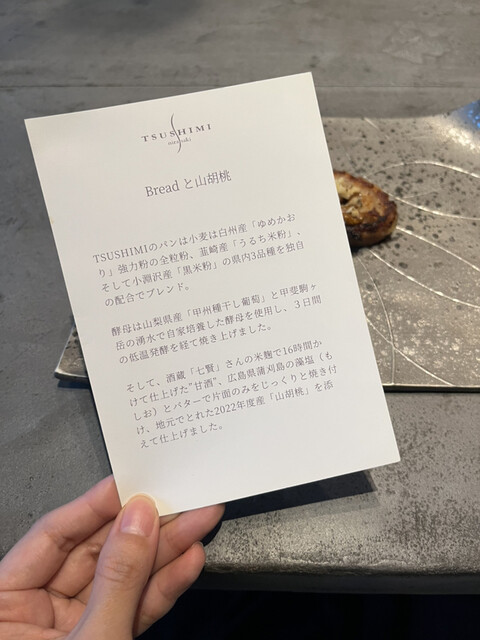 TSUSHIMI
Bread と山胡桃
TSUSHIMIのパンは小麦は白州産「ゆめかお
り」強力粉の全粒粉、韮崎産「うるち米粉」、
そして小淵沢産「黒米粉」の県内3品種を独自
の配合でブレンド。
酵母は山梨県産「甲州種干し葡萄」と甲斐駒ヶ
岳の湧水で自家培養した酵母を使用し、３日間
の低温発酵を経て焼き上げました。
そして、酒蔵「七賢」さんの米麹で16時間か
けて仕上げた"甘酒"、広島県蒲刈島の藻塩（も
しお）とバターで片面のみをじっくりと焼き付
け、地元でとれた2022年度産「山胡桃」を添
えて仕上げました。